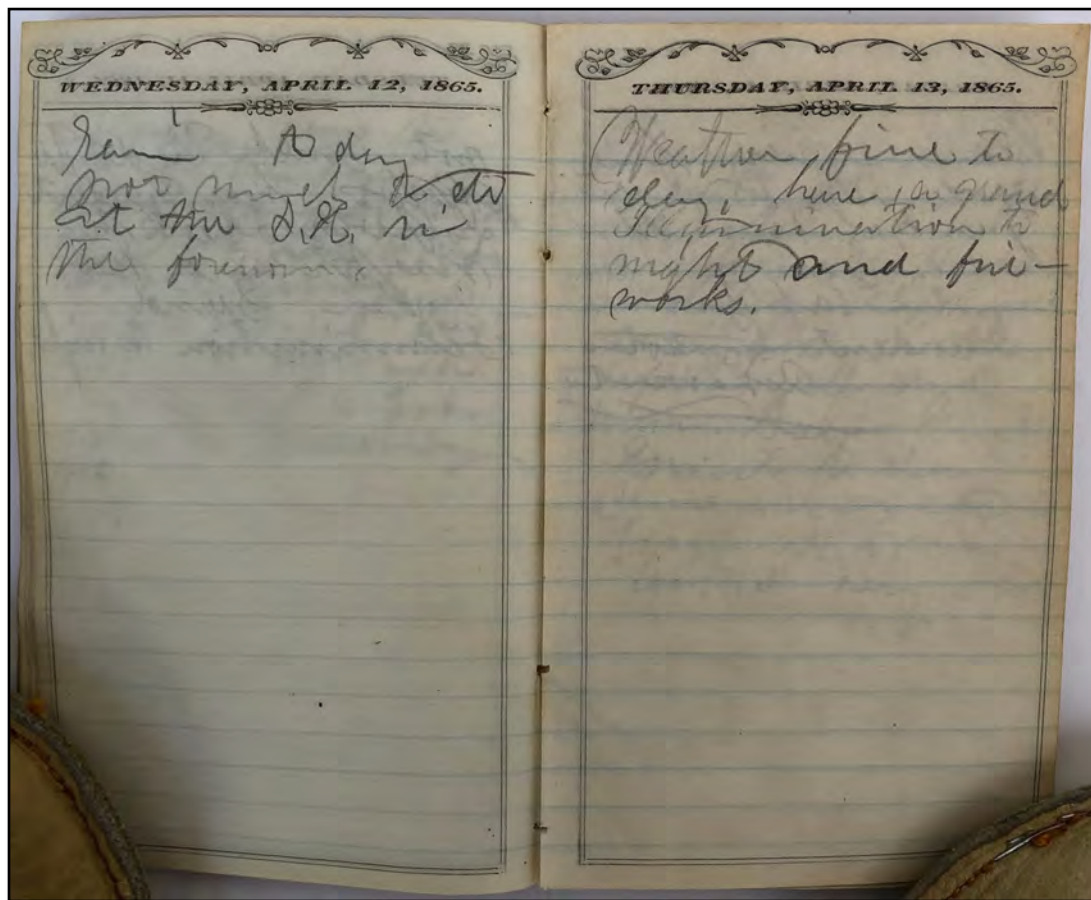 WEDNESDAY, APRIL 12, 1865.
Rain to day
not much to do
at the S.H. in
the forenoon.
THURSDAY, APRIL 13, 1865.
Weather fine to
day, have a grand
Illumination to
night and fire-
works.